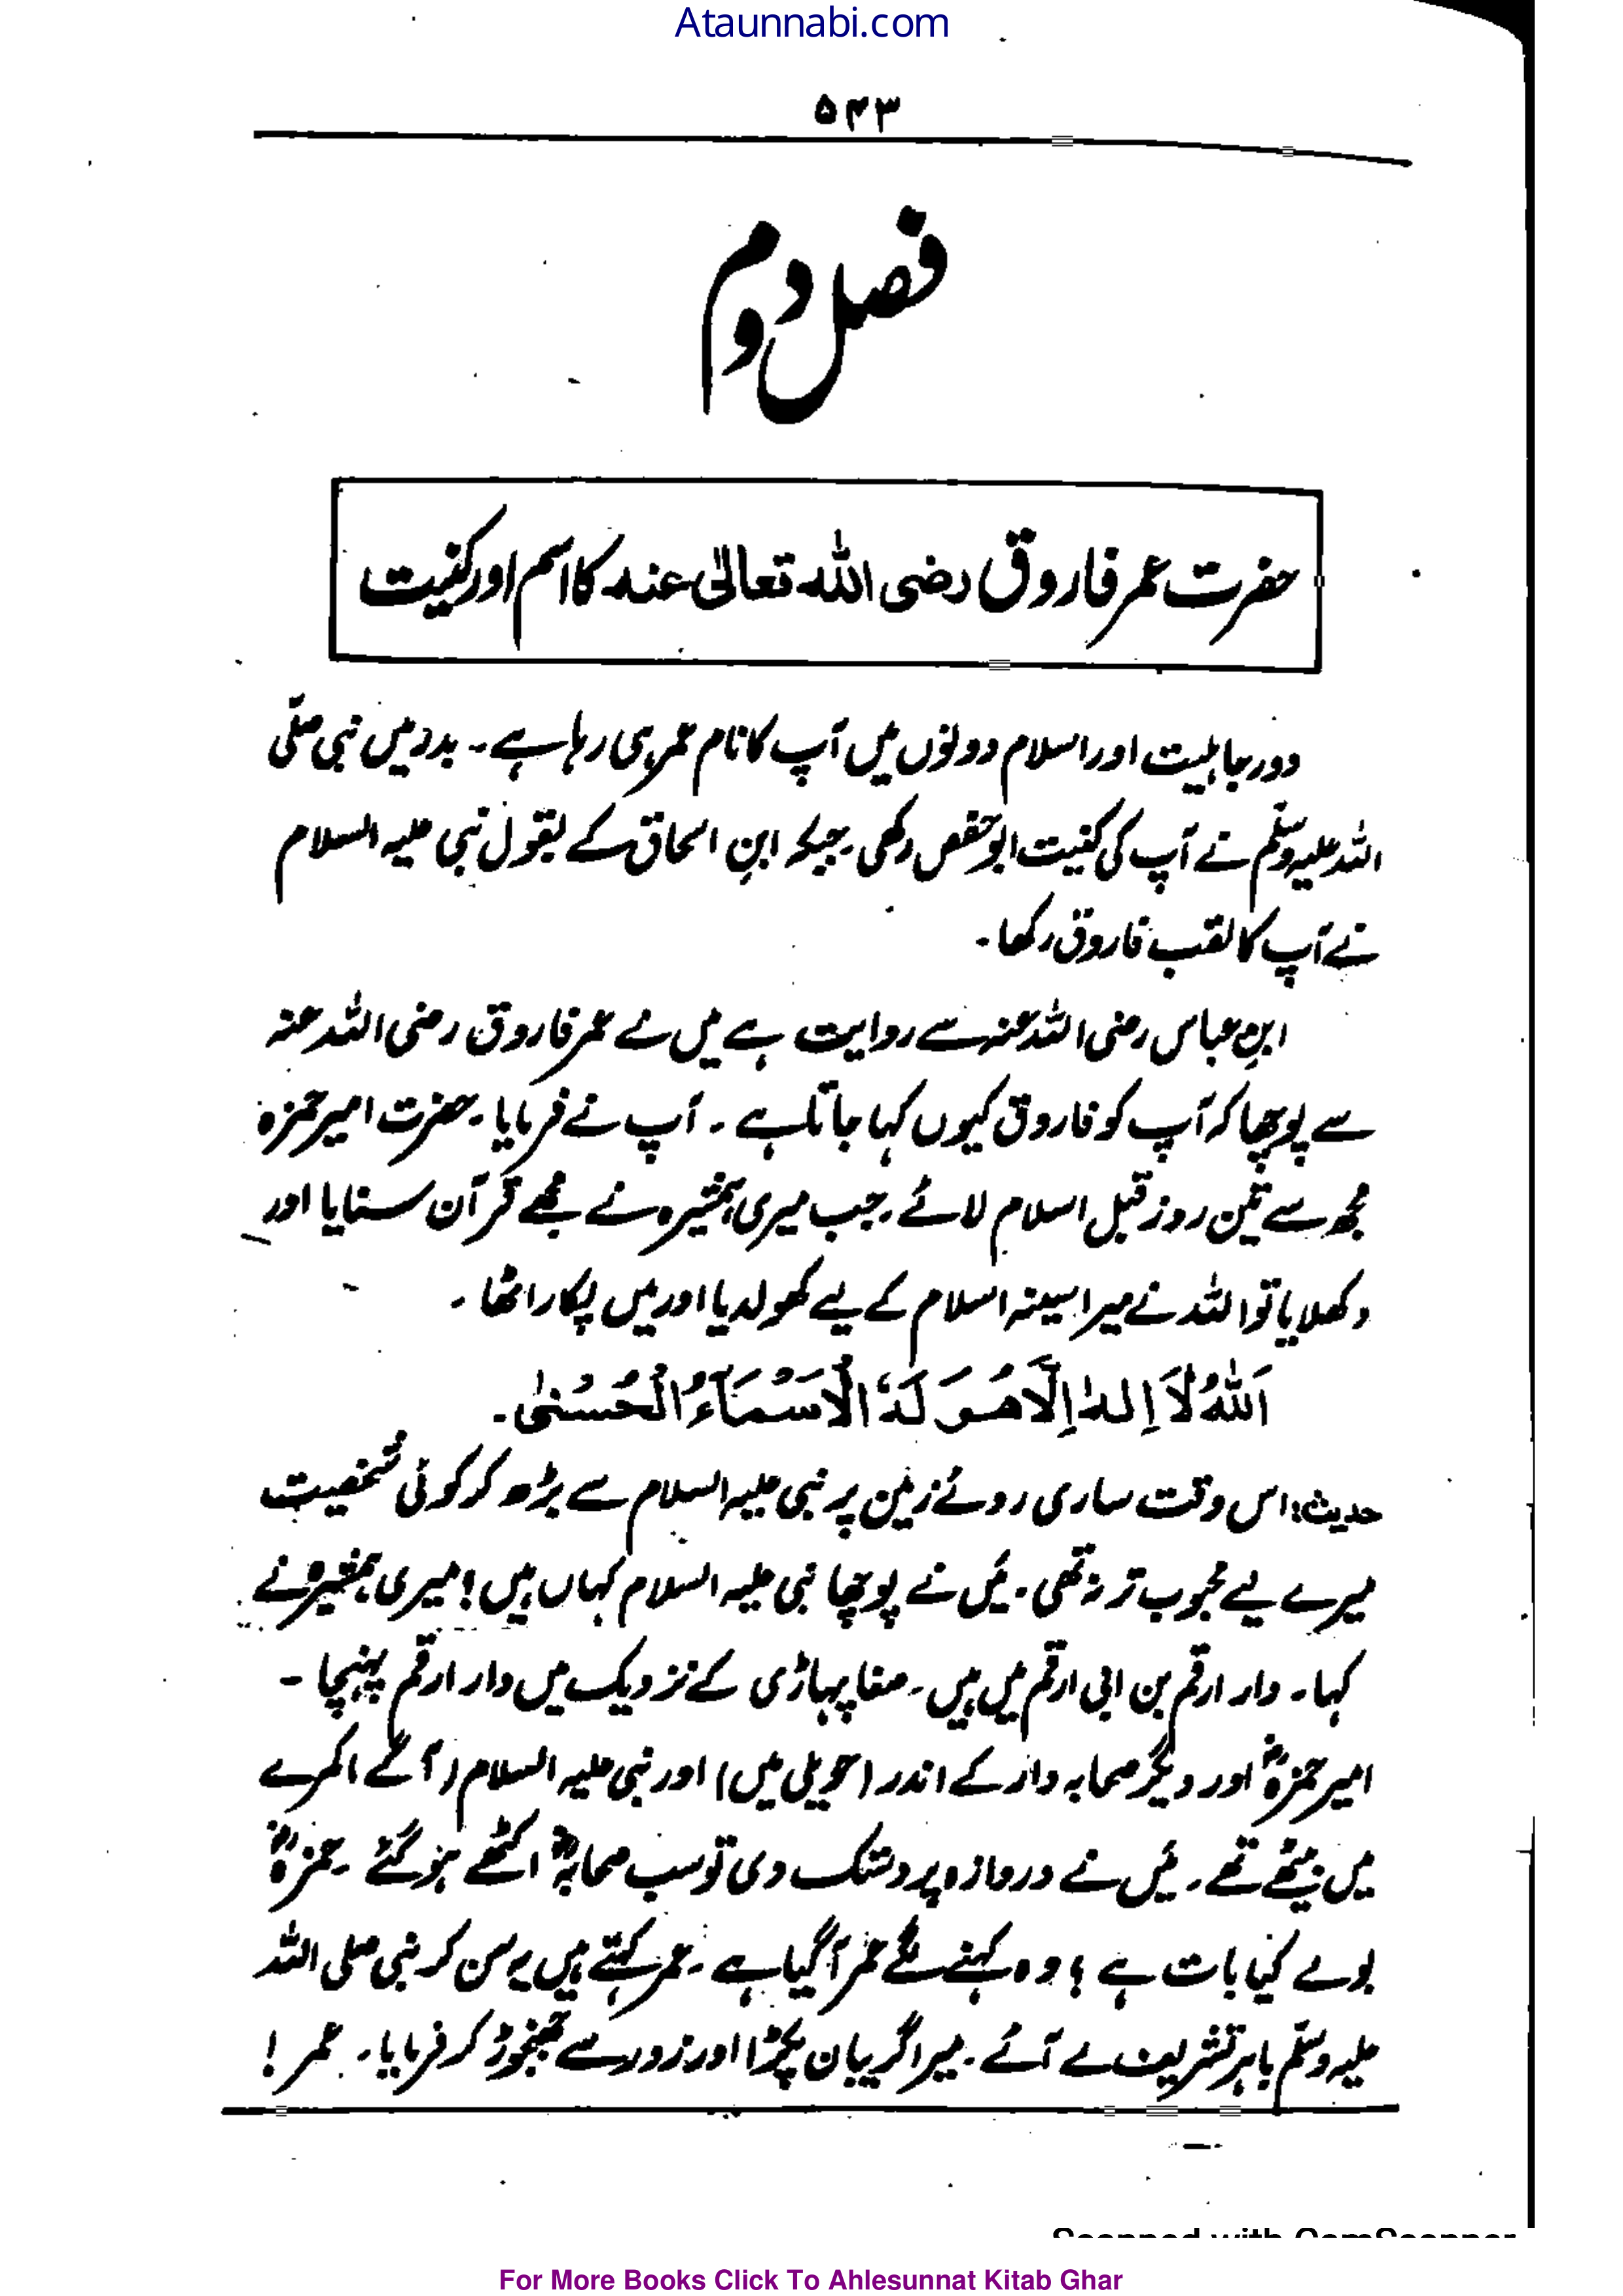 Ataunnabi.com
۵۴۳
فصل دوم
حضرت عمر فاروق رضی اللہ تعالیٰ عنہ کا اسم اور کنیت
دور جاہلیت اور اسلام دونوں میں آپ کا نام عمر ہی رہا ہے۔ بدر میں نبی صلّی
اللہ علیہ وسلّم نے آپ کی کنیت ابوحفص رکھی۔ جبکہ ابنِ اسحاق کے بقول نبی علیہ السلام
نے آپ کا لقب فاروق رکھا۔
ابنِ عباس رضی اللہ عنہ سے روایت ہے میں نے عمر فاروق رضی اللہ عنہ
سے پوچھا کہ آپ کو فاروق کیوں کہا جاتا ہے۔ آپ نے فرمایا۔ حضرت امیر حمزہ
مجھ سے تین روز قبل اسلام لائے۔ جب میری ہمشیرہ نے مجھے قرآن سنایا اور
دکھلایا تو اللہ نے میرا سینہ اسلام کے لیے کھولدیا اور میں پکار اٹھا۔
اَللّٰهُ لَا اِلٰهَ اِلَّا هُوَ لَهُ الْاَسْمَآءُ الْحُسْنٰى۔
حدیث: اس وقت ساری روئے زمین پر نبی علیہ السلام سے بڑھ کر کوئی شخصیت
میرے لیے محبوب تر نہ تھی۔ میَں نے پوچھا نبی علیہ السلام کہاں ہیں؟ میری ہمشیرہ نے
کہا۔ دار ارقم بن ابی ارقم میں ہیں۔ صفا پہاڑی کے نزدیک میں دار ارقم پہنچا۔
امیر حمزہؓ اور دیگر صحابہ دار کے اندر (حویلی میں) اور نبی علیہ السلام (آگے) کمرے
میں بیٹھے تھے۔ میَں نے دروازہ پر دستک دی تو سب صحابہؓ اکٹھے ہو گئے۔ حمزہؓ
بولے کیا بات ہے؟ وہ کہنے لگے عمر آگیا ہے۔ عمر کہتے ہیں یہ سن کر نبی صلی اللہ
علیہ وسلّم باہر تشریف لے آئے۔ میرا گریبان پکڑا اور زور سے جھنجوڑ کر فرمایا۔ عمر!
Scanned with CamScanner
For More Books Click To Ahlesunnat Kitab Ghar